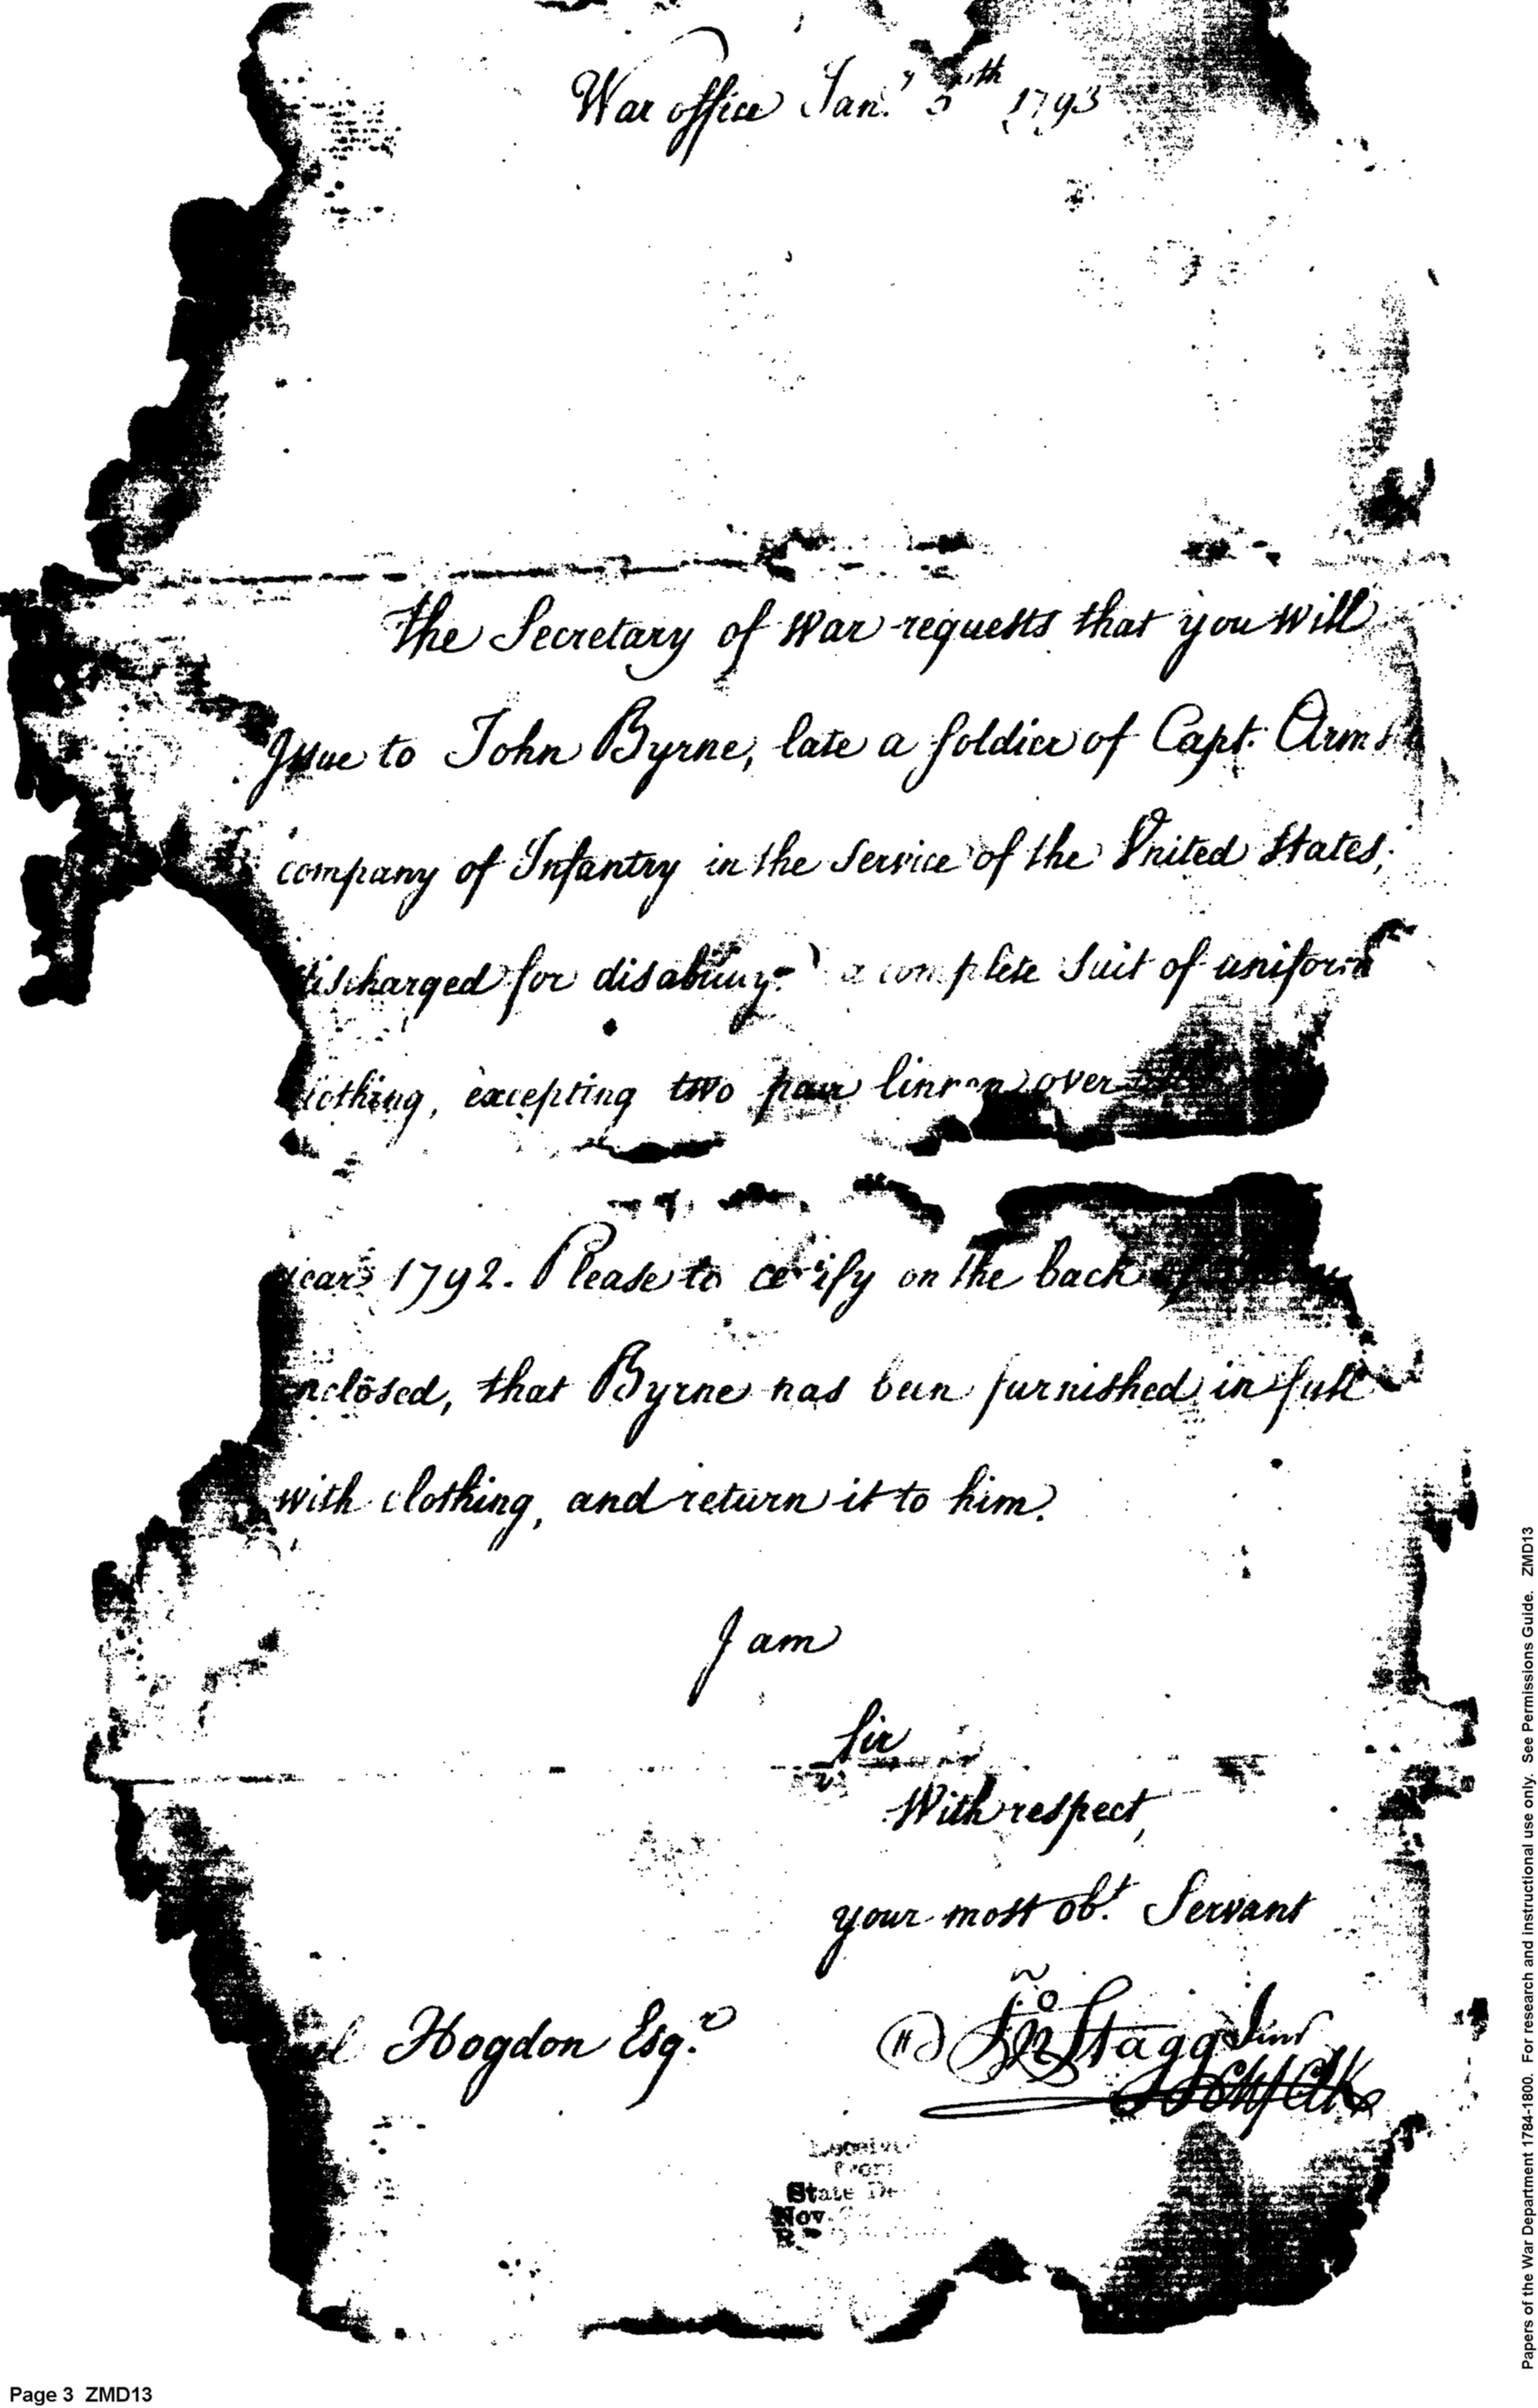 War office Jan.y 5th 1793
The Secretary of War requests that you will
Issue to John Byrne, late a Soldier of Capt. Arms
company of Infantry in the Service of the United States,
discharged for disability. a complete Suit of uniform
clothing, excepting two pair linnen over
year 1792. Please to certify on the back
enclosed, that Byrne has been furnished in full
with clothing, and return it to him.
I am
Sir
With respect,
your most obt. Servant
Hogdon Esqr.
Jno Stagg Junr
Received
From
State De
Nov.
Page 3 ZMD13
Papers of the War Department 1784-1800. For research and instructional use only. See Permissions Guide. ZMD13